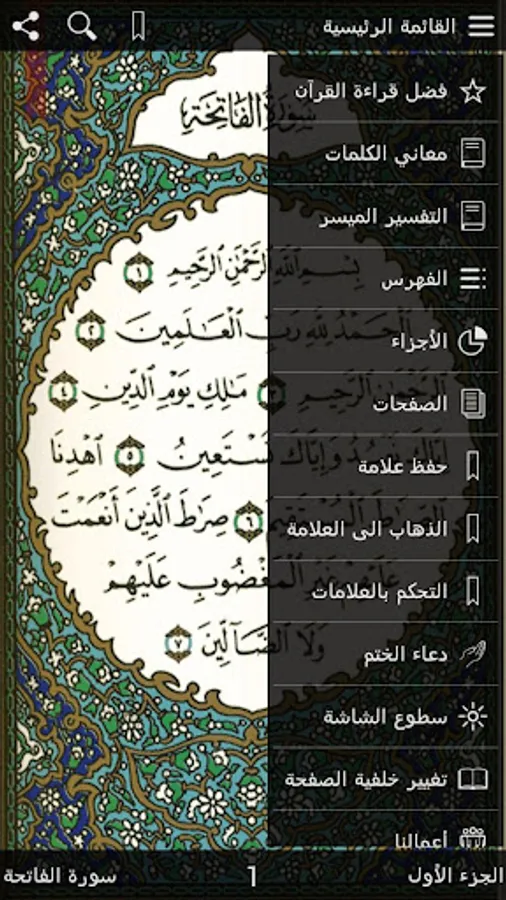 القائمة الرئيسية
فضل قراءة القرآن
معاني الكلمات
التفسير الميسر
الفهرس
الأجزاء
الصفحات
حفظ علامة
الذهاب الى العلامة
التحكم بالعلامات
دعاء الختم
سطوع الشاشة
تغيير خلفية الصفحة
أعمالنا
سُورَةُ الفَاتِحَةِ
بِسْمِ ٱللَّهِ ٱلرَّحْمَٰنِ ٱلرَّحِيمِ ١
ٱلْحَمْدُ لِلَّهِ رَبِّ ٱلْعَٰلَمِينَ ٢
ٱلرَّحْمَٰنِ ٱلرَّحِيمِ ٣ مَٰلِكِ يَوْمِ ٱلدِّينِ ٤
إِيَّاكَ نَعْبُدُ وَإِيَّاكَ نَسْتَعِينُ ٥ ٱهْدِنَا
ٱلصِّرَٰطَ ٱلْمُسْتَقِيمَ ٦ صِرَٰطَ ٱلَّذِينَ أَنْعَمْتَ
عَلَيْهِمْ غَيْرِ ٱلْمَغْضُوبِ عَلَيْهِمْ
وَلَا ٱلضَّآلِّينَ ٧
الجزء الأول 1 سورة الفاتحة